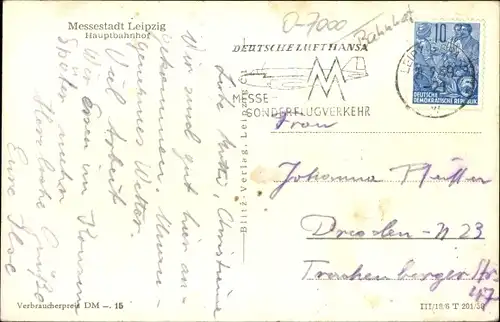 Messestadt Leipzig
Hauptbahnhof
O-7000
Bahnhof
DEUTSCHE LUFTHANSA
MM
MESSE
SONDERFLUGVERKEHR
10
DEUTSCHE
DEMOKRATISCHE REPUBLIK
LEIPZIG
Liebe Mutti, Christine
Wir sind gut hier an-
gekommen. Wun-
Wetter.
Viel Arbeit
Wir im
Später mehr
Herzliche Grüße
Eure Ilse
Bild-Verlag, Leipzig
Frau
Johanna Pfeiffer
Dresden-N 23
Trachenberger Str.
47
Verbraucherpreis DM -.15
III/18/6 T 201/59